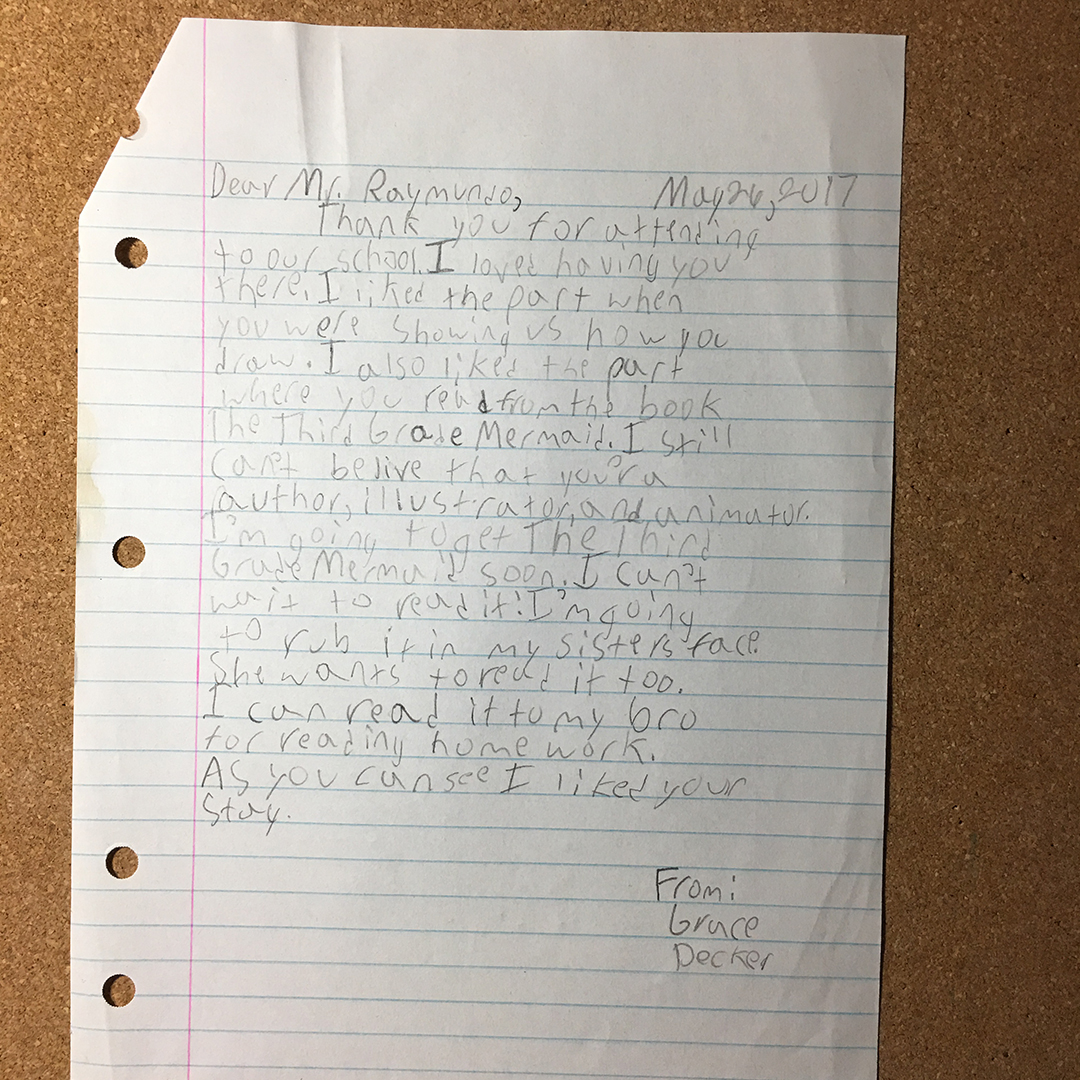 Dear Mr. Raymundo, May 26, 2017
Thank you for attending
to our school. I loved having you
there. I liked the part when
you were showing us how you
draw. I also liked the part
where you read from the book
The Third Grade Mermaid. I still
can't belive that you'r a
author, illustrator, and, animator.
I'm going to get The Third
Grade Mermaid soon. I can't
wait to read it! I'm going
to rub it in my sisters face.
She wants to read it too.
I can read it to my bro
for reading home work.
As you can see I liked your
stay.
From:
Grace
Decker